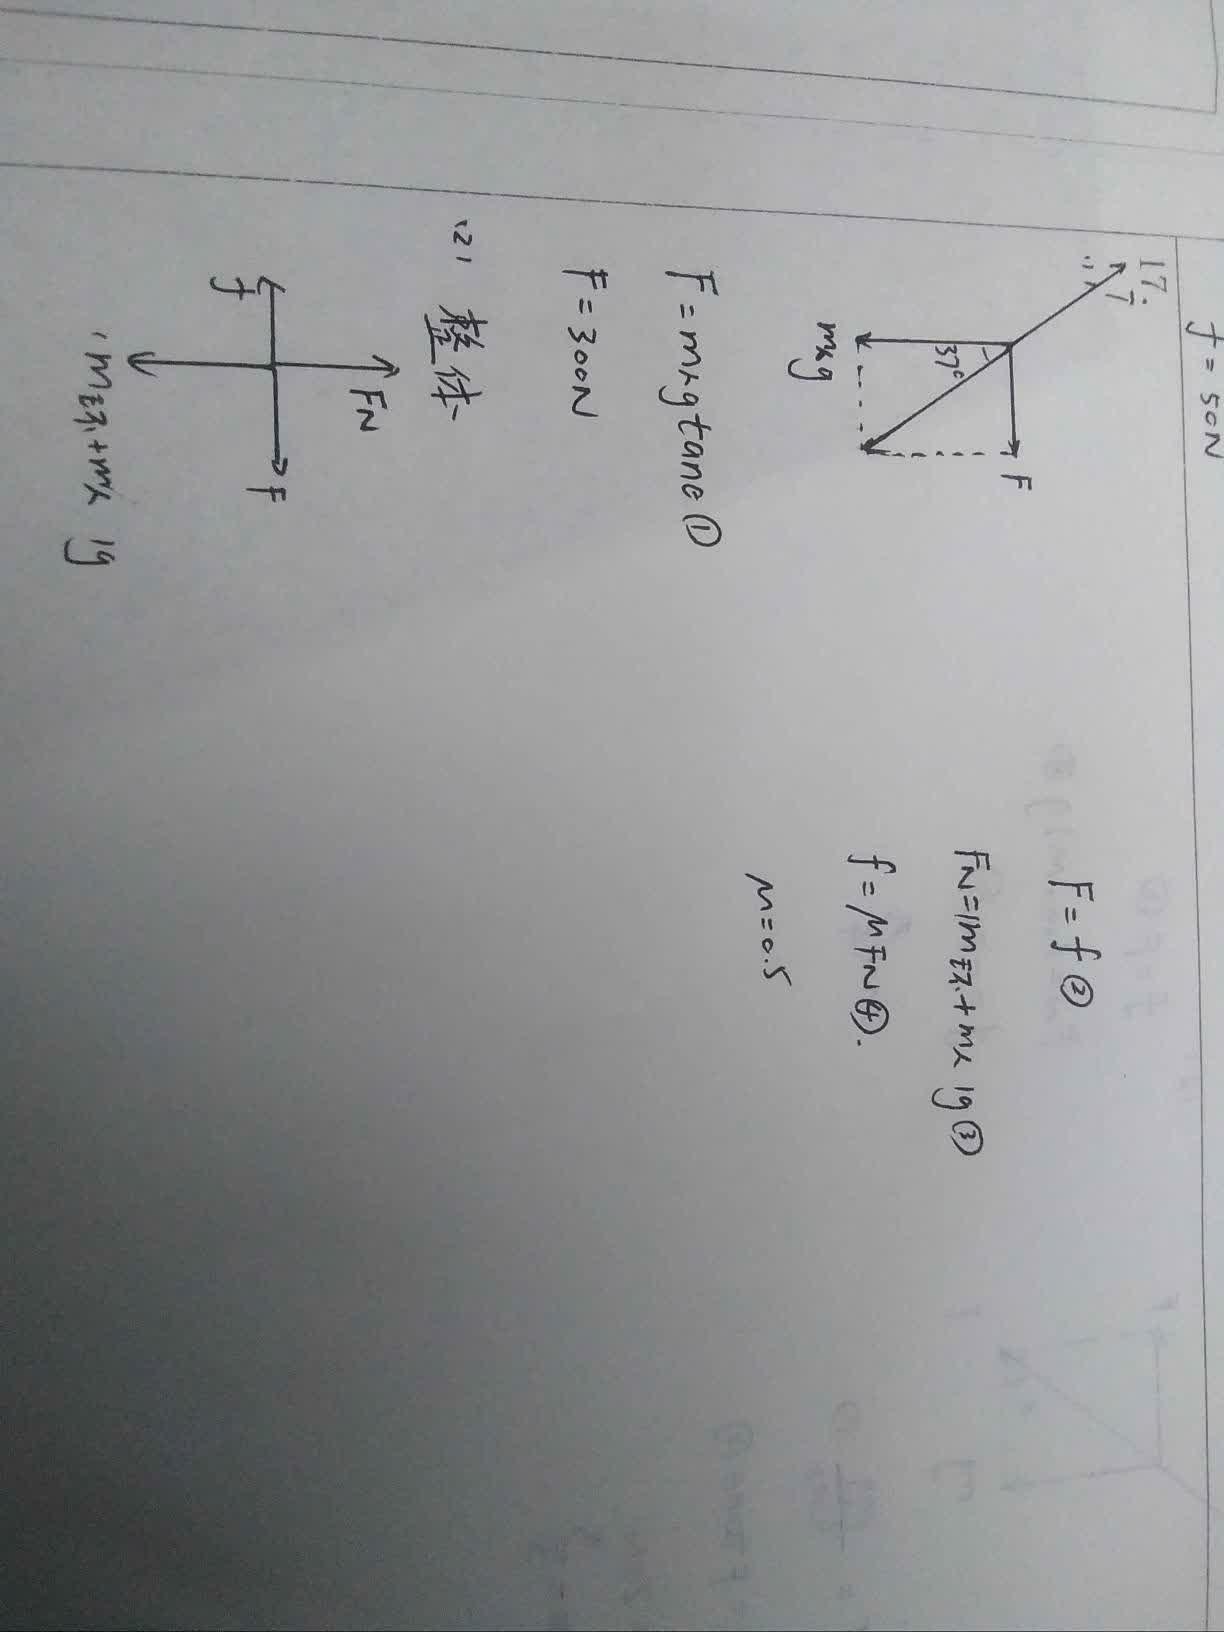 f = 50N
17.
(1)
T
F
37°
m人g
F = m人g tanθ ①
F = 300N
(2) 整体
FN
f
F
(m重物+m人)g
F = f ②
FN = (m重物+m人)g ③
f = μFN ④.
μ = 0.5